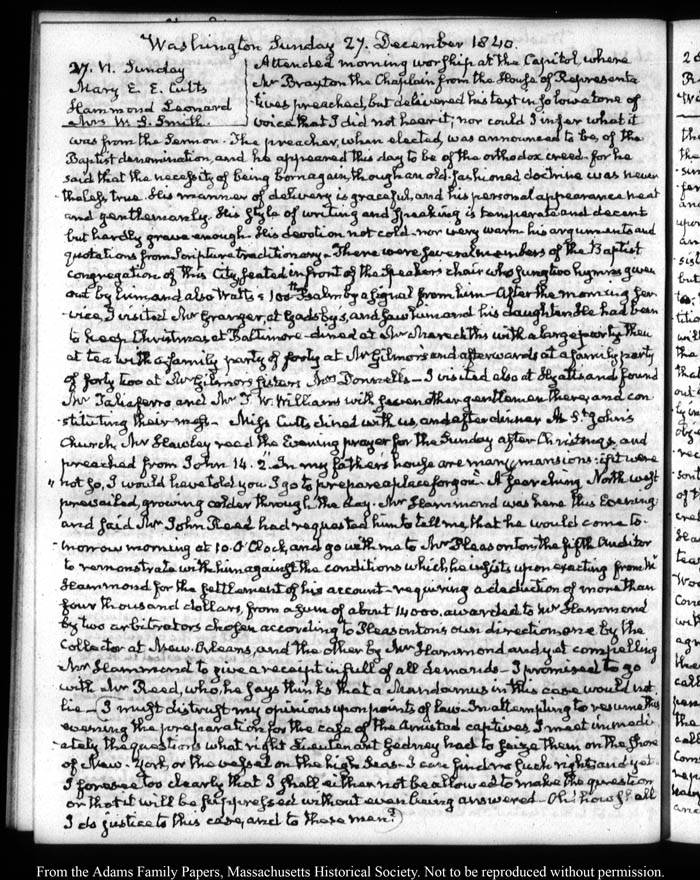 Washington Sunday 27. December 1840.
27. VI. Sunday
Mary E. E. Cutts
Hammond Leonard
Mrs W. S. Smith.
Attended morning worship at the Capitol, where
Mr Braxton the Chaplain from the House of Representa
tives preached, but delivered his text in so low a tone of
voice that I did not hear it; nor could I infer what it
was from the Sermon. The preacher, when elected, was announced to be, of the
Baptist denomination, and he appeared this day to be of the orthodox creed. for he
said that the necessity of being born again, though an old-fashioned doctrine was never
theless, true. His manner of delivery is graceful, and his personal appearance neat
and gentlemanly. His style of writing and speaking is temperate and decent
but hardly grave enough. His devotion not cold. nor very warm his arguments and
quotations from Scripture traditionary. There were several members of the Baptist
congregation of this City, seated in front of the Speakers chair who sung two hymns given
out by him and also Watts's 100th Psalm by a signal from him. After the morning ser
vice, I visited Mr Granger, at Gadsby's, and saw him and his daughter. He had been
to keep Christmas at Baltimore. dined at Mr with a large party then
at tea with a family party of forty at Mr Gilmor's and afterwards at a family party
of forty too at Mr Gilmors Mrs I visited also at Hyatts and found
Mr Taliaferro and Mr T. W. Williams with seven other gentlemen there, and con
stituting their mess. Miss Cutts dined with us, and after dinner At St John's
Church, Mr Hawley read the Evening prayer for the Sunday after Christmas, and
preached from John 14. 2. "In my father's house are many mansions: if it were
"not so, I would have told you. I go to prepare a place for you." A searching North west
prevailed, growing colder through the day. Mr Hammond was here this Evening
and said Mr John Reed had requested him to tell me, that he would come to-
morrow morning at 10. O'Clock, and go with me to Mr Pleasonton, the fifth Auditor
to remonstrate with him against the conditions which he insists upon exacting from Mr
Hammond for the settlement of his account. requiring a deduction of more than
four thousand dollars, from a sum of about 14000. awarded to Mr Hammond
by two arbitrators chosen according to Pleasonton's own direction, one by the
Collector at New Orleans, and the other by Mr Hammond and yet compelling
Mr Hammond to give a receipt in full of all demands. I promised to go
with Mr Reed, who, he says thinks that a Mandamus in this case would not
lie. (I must distrust my opinions upon points of law. In attempting to resume this
evening the preparation for the case of the Amistad captives, I meet immedi-
ately the questions what right Lieutenant Gedney had to seize them on the Shore
of New-York, or the vessel on the high Seas. I can find no such right, and yet
I foresee too clearly that I shall either not be allowed to make the question
or that it will be suppressed without even being answered. Oh! how shall
I do justice to this case, and to these men?)
From the Adams Family Papers, Massachusetts Historical Society. Not to be reproduced without permission.